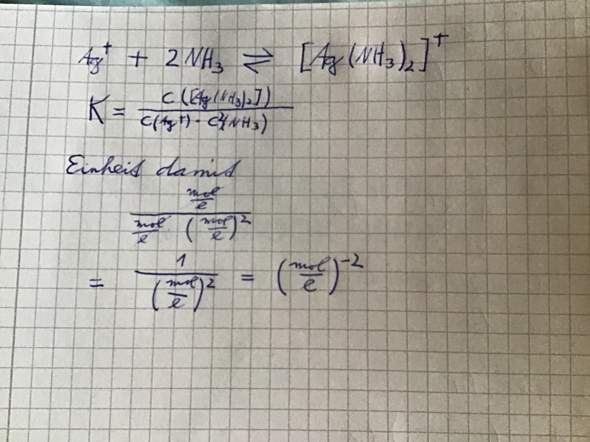 Ag⁺ + 2 NH₃ ⇌ [Ag(NH₃)₂]⁺
K = c([Ag(NH₃)₂]) / c(Ag⁺) · c²(NH₃)
Einheit damit
mol/l / mol/l (mol/l)²
= 1 / (mol/l)² = (mol/l)⁻²